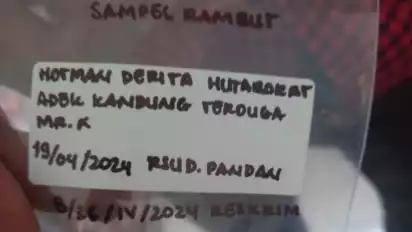 SAMPEL RAMBUT
HOTMAN DERITA HUTABARAT
ADEK KANDUNG TERDUGA
MR. K
19/04/2024 RSUD. PANDAN
B/36/IV/2024 RESKRIM